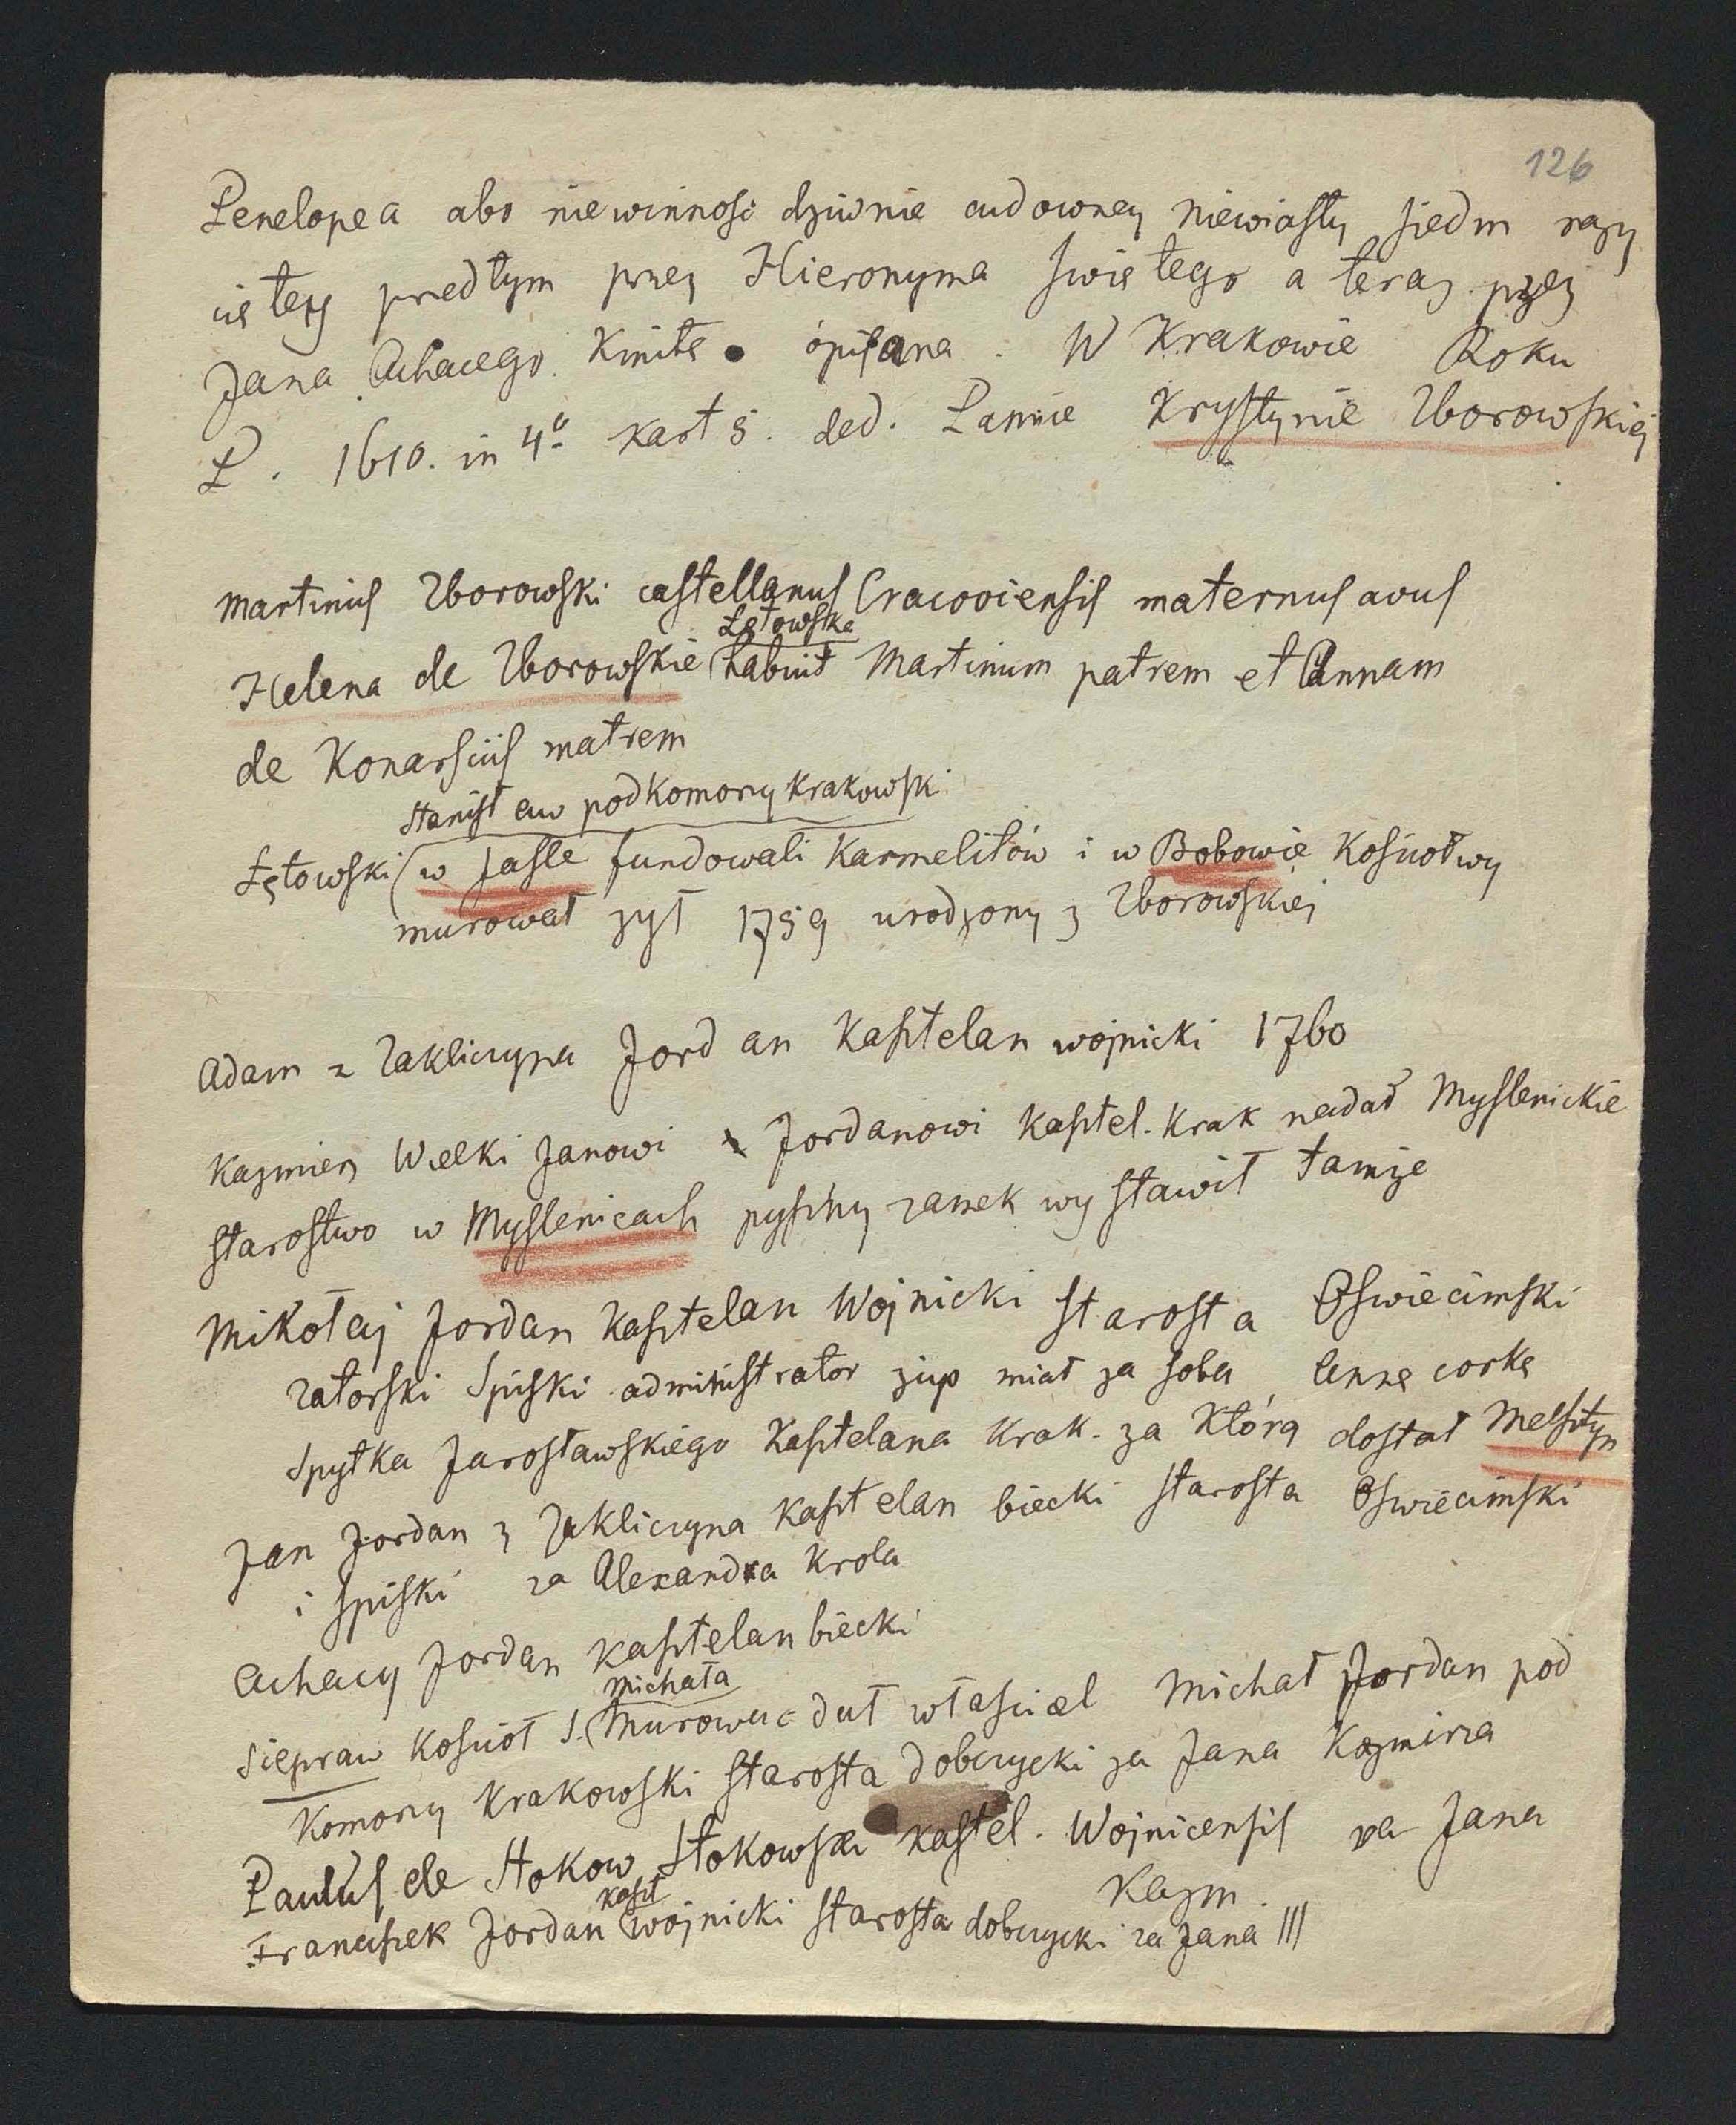 126
Penelopea abo niewinnosc dziwnie cudowney niewiasty siedm razy
ciętey przedtym przez Hieronyma swiętego a teraz przez
Jana Achacego Kmitę opisana. W Krakowie Roku
P. 1610. in 4º kart 5. ded. Pannie Krystynie Zborowskiej
Martinus Zborowski castellanus Cracoviensis maternus avus
Łętowska
Helena de Zborowskie habuit Martinum patrem et Annam
de Konarsciis matrem
Stanisław podkomorzy krakowski
Łętowski w Jasle fundowali Karmelitów i w Bobowie Kościoł wy
murował żył 1759 urodzony z Zborowskiej
Adam z Zakliczyna Jordan Kasztelan wojnicki 1760
Kazmierz Wielki Janowi Jordanowi Kasztel. Krak nadał Myslenickie
starostwo w Myslenicach pyszny zamek wystawił tamże
Mikołaj Jordan Kasztelan Wojnicki starosta Oswiecimski
Zatorski Spiski administrator żup miał za sobą Annę corkę
Spytka Jarosławskiego Kasztelana Krak. za Którą dostał Melsztyn
Jan Jordan z Zakliczyna Kasztelan biecki starosta Oswiecimski
i spiski za Alexandra Krola
Achacy Jordan Kasztelan biecki
Michała
Siepraw Kościoł S. Murowac dał własciciel Michał Jordan pod
Komorzy Krakowski starosta dobczycki za Jana Kazmirza
Paulus de Stokow Stokowski kastel. Wojnicensis za Jana
Kazm.
kaszt
Franciszek Jordan wojnicki starosta dobczycki za Jana III